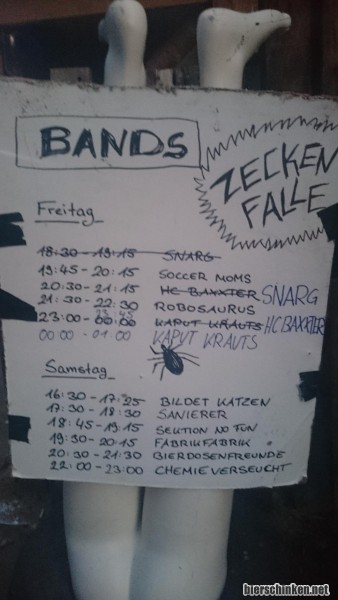 BANDS
ZECKEN
FALLE
Freitag
18:30 - 19:15 SNARG
19:45 - 20:15 SOCCER MOMS
20:30 - 21:15 HC BAXXTER SNARG
21:30 - 22:30 ROBOSAURUS
23:00 - 00:00 23:45 KAPUT KRAUTS HC BAXXTER
00:00 - 01:00 KAPUT KRAUTS
Samstag
16:30 - 17:25 BILDET KATZEN
17:30 - 18:30 SANIERER
18:45 - 19:15 SEKTION NO FUN
19:30 - 20:15 FABRIKFABRIK
20:30 - 21:30 BIERDOSENFREUNDE
22:00 - 23:00 CHEMIEVERSEUCHT
bierschinken.net